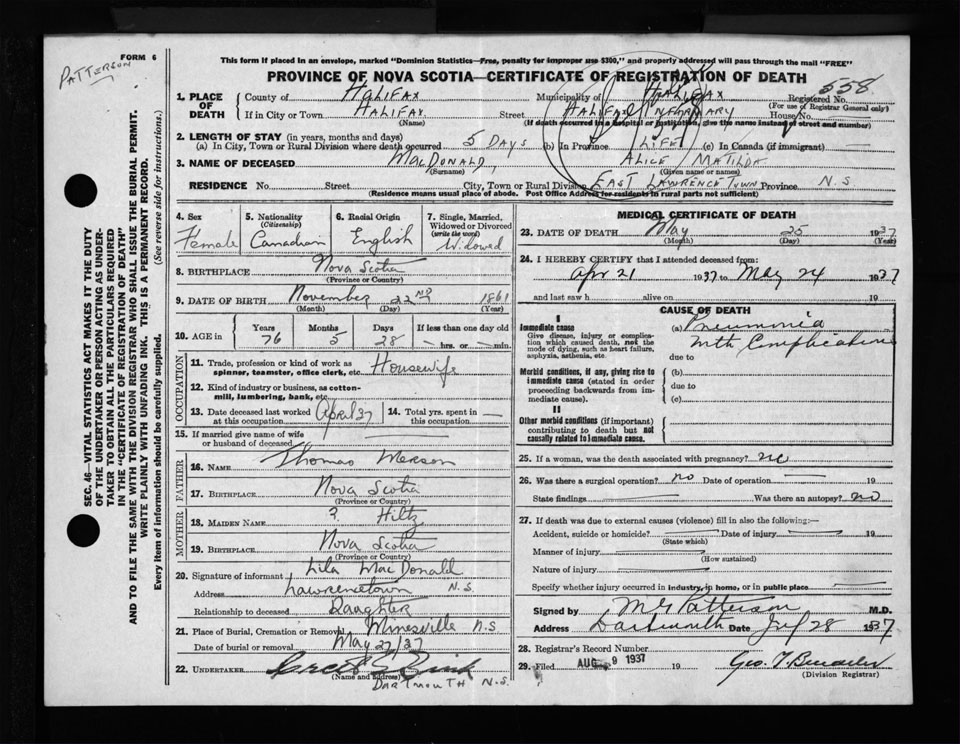 PATTERSON
FORM 6
This form if placed in an envelope, marked "Dominion Statistics—Free, penalty for improper use $300," and properly addressed will pass through the mail "FREE"
PROVINCE OF NOVA SCOTIA—CERTIFICATE OF REGISTRATION OF DEATH
558
1. PLACE OF DEATH
County of HALIFAX Municipality of HALIFAX Registered No.
(For use of Registrar General only)
If in City or Town HALIFAX Street HALIFAX INFIRMARY House No.
(Name) (If death occurred in a hospital or institution, give the name instead of street and number)
2. LENGTH OF STAY (in years, months and days)
(a) In City, Town or Rural Division where death occurred 5 DAYS (b) In Province LIFE (c) In Canada (if immigrant) —
3. NAME OF DECEASED MACDONALD, ALICE MATILDA
(Surname) (Given name or names)
RESIDENCE No. Street City, Town or Rural Division EAST LAWRENCETOWN Province N.S
(Residence means usual place of abode. Post Office Address for residents in rural parts not sufficient)
SEC. 46—VITAL STATISTICS ACT MAKES IT THE DUTY
OF THE UNDERTAKER OR PERSON ACTING AS UNDER-
TAKER TO OBTAIN ALL THE PARTICULARS REQUIRED
IN THE "CERTIFICATE OF REGISTRATION OF DEATH"
AND TO FILE THE SAME WITH THE DIVISION REGISTRAR WHO SHALL ISSUE THE BURIAL PERMIT.
WRITE PLAINLY WITH UNFADING INK. THIS IS A PERMANENT RECORD.
Every item of information should be carefully supplied. (See reverse side for instructions.)
4. Sex 5. Nationality 6. Racial Origin 7. Single, Married,
(Citizenship) Widowed or Divorced
(write the word)
Female Canadian English Widowed
8. BIRTHPLACE Nova Scotia
(Province or Country)
9. DATE OF BIRTH November 22ND 1861
(Month) (Day) (Year)
10. AGE in Years Months Days If less than one day old
76 5 28 — hrs. or — min.
OCCUPATION
11. Trade, profession or kind of work as Housewife
spinner, teamster, office clerk, etc.
12. Kind of industry or business, as cotton-
mill, lumbering, bank, etc.
13. Date deceased last worked April 37 14. Total yrs. spent in —
at this occupation this occupation
15. If married give name of wife
or husband of deceased
FATHER
16. NAME Thomas Merson
17. BIRTHPLACE Nova Scotia
(Province or Country)
MOTHER
18. MAIDEN NAME ? Hiltz
19. BIRTHPLACE Nova Scotia
(Province or Country)
20. Signature of informant Lila MacDonald
Address Lawrencetown N.S.
Relationship to deceased Daughter
21. Place of Burial, Cremation or Removal Minesville N.S
Date of burial or removal May 27/37
22. UNDERTAKER
(Name and address)
DARTMOUTH N.S.
MEDICAL CERTIFICATE OF DEATH
23. DATE OF DEATH May 25 1937
(Month) (Day) (Year)
24. I HEREBY CERTIFY that I attended deceased from:
Apr 21 1937 to May 24 1937
and last saw h alive on 19
CAUSE OF DEATH
I
Immediate cause (a) Pneumonia
Give disease, injury or complica- with Complications
tion which caused death, not the
mode of dying, such as heart failure, due to
asphyxia, asthenia, etc.
Morbid conditions, if any, giving rise to (b)
immediate cause (stated in order due to
proceeding backwards from im- (c)
mediate cause).
II
Other morbid conditions (if important)
contributing to death but not
causally related to immediate cause.
25. If a woman, was the death associated with pregnancy? no
26. Was there a surgical operation? no Date of operation —
State findings Was there an autopsy? no
27. If death was due to external causes (violence) fill in also the following:—
Accident, suicide or homicide? Date of injury 19
(State which)
Manner of injury
(How sustained)
Nature of injury
Specify whether injury occurred in industry, in home, or in public place
Signed by Patterson M.D.
Address Dartmouth Date 28 1937
28. Registrar's Record Number
29. Filed AUG 9 1937 19 Geo. T.
(Division Registrar)